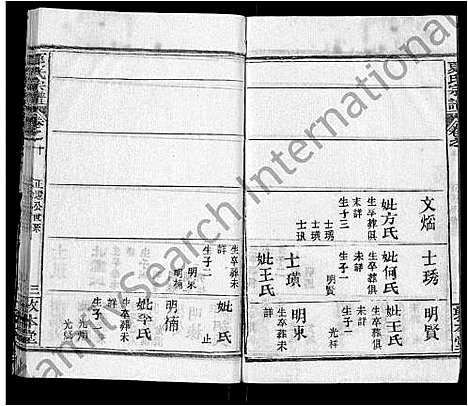 夏氏宗譜
文煏
妣方氏
生卒葬俱
未詳
生子三
士琇
士瑛
士璌
士琇
妣何氏
生卒葬俱
未詳
生子一
明賢
士璌
妣王氏
生卒葬未
詳
生子二
明東
明楠
明賢
妣王氏
生卒葬俱
未詳
生子一
光裕
明東
生卒葬未
詳
妣 氏
止
明楠
妣李氏
生卒葬未
詳
生子二
夏氏宗譜
卷之十
正邉公世系
三
敦本堂
FamilySearch International